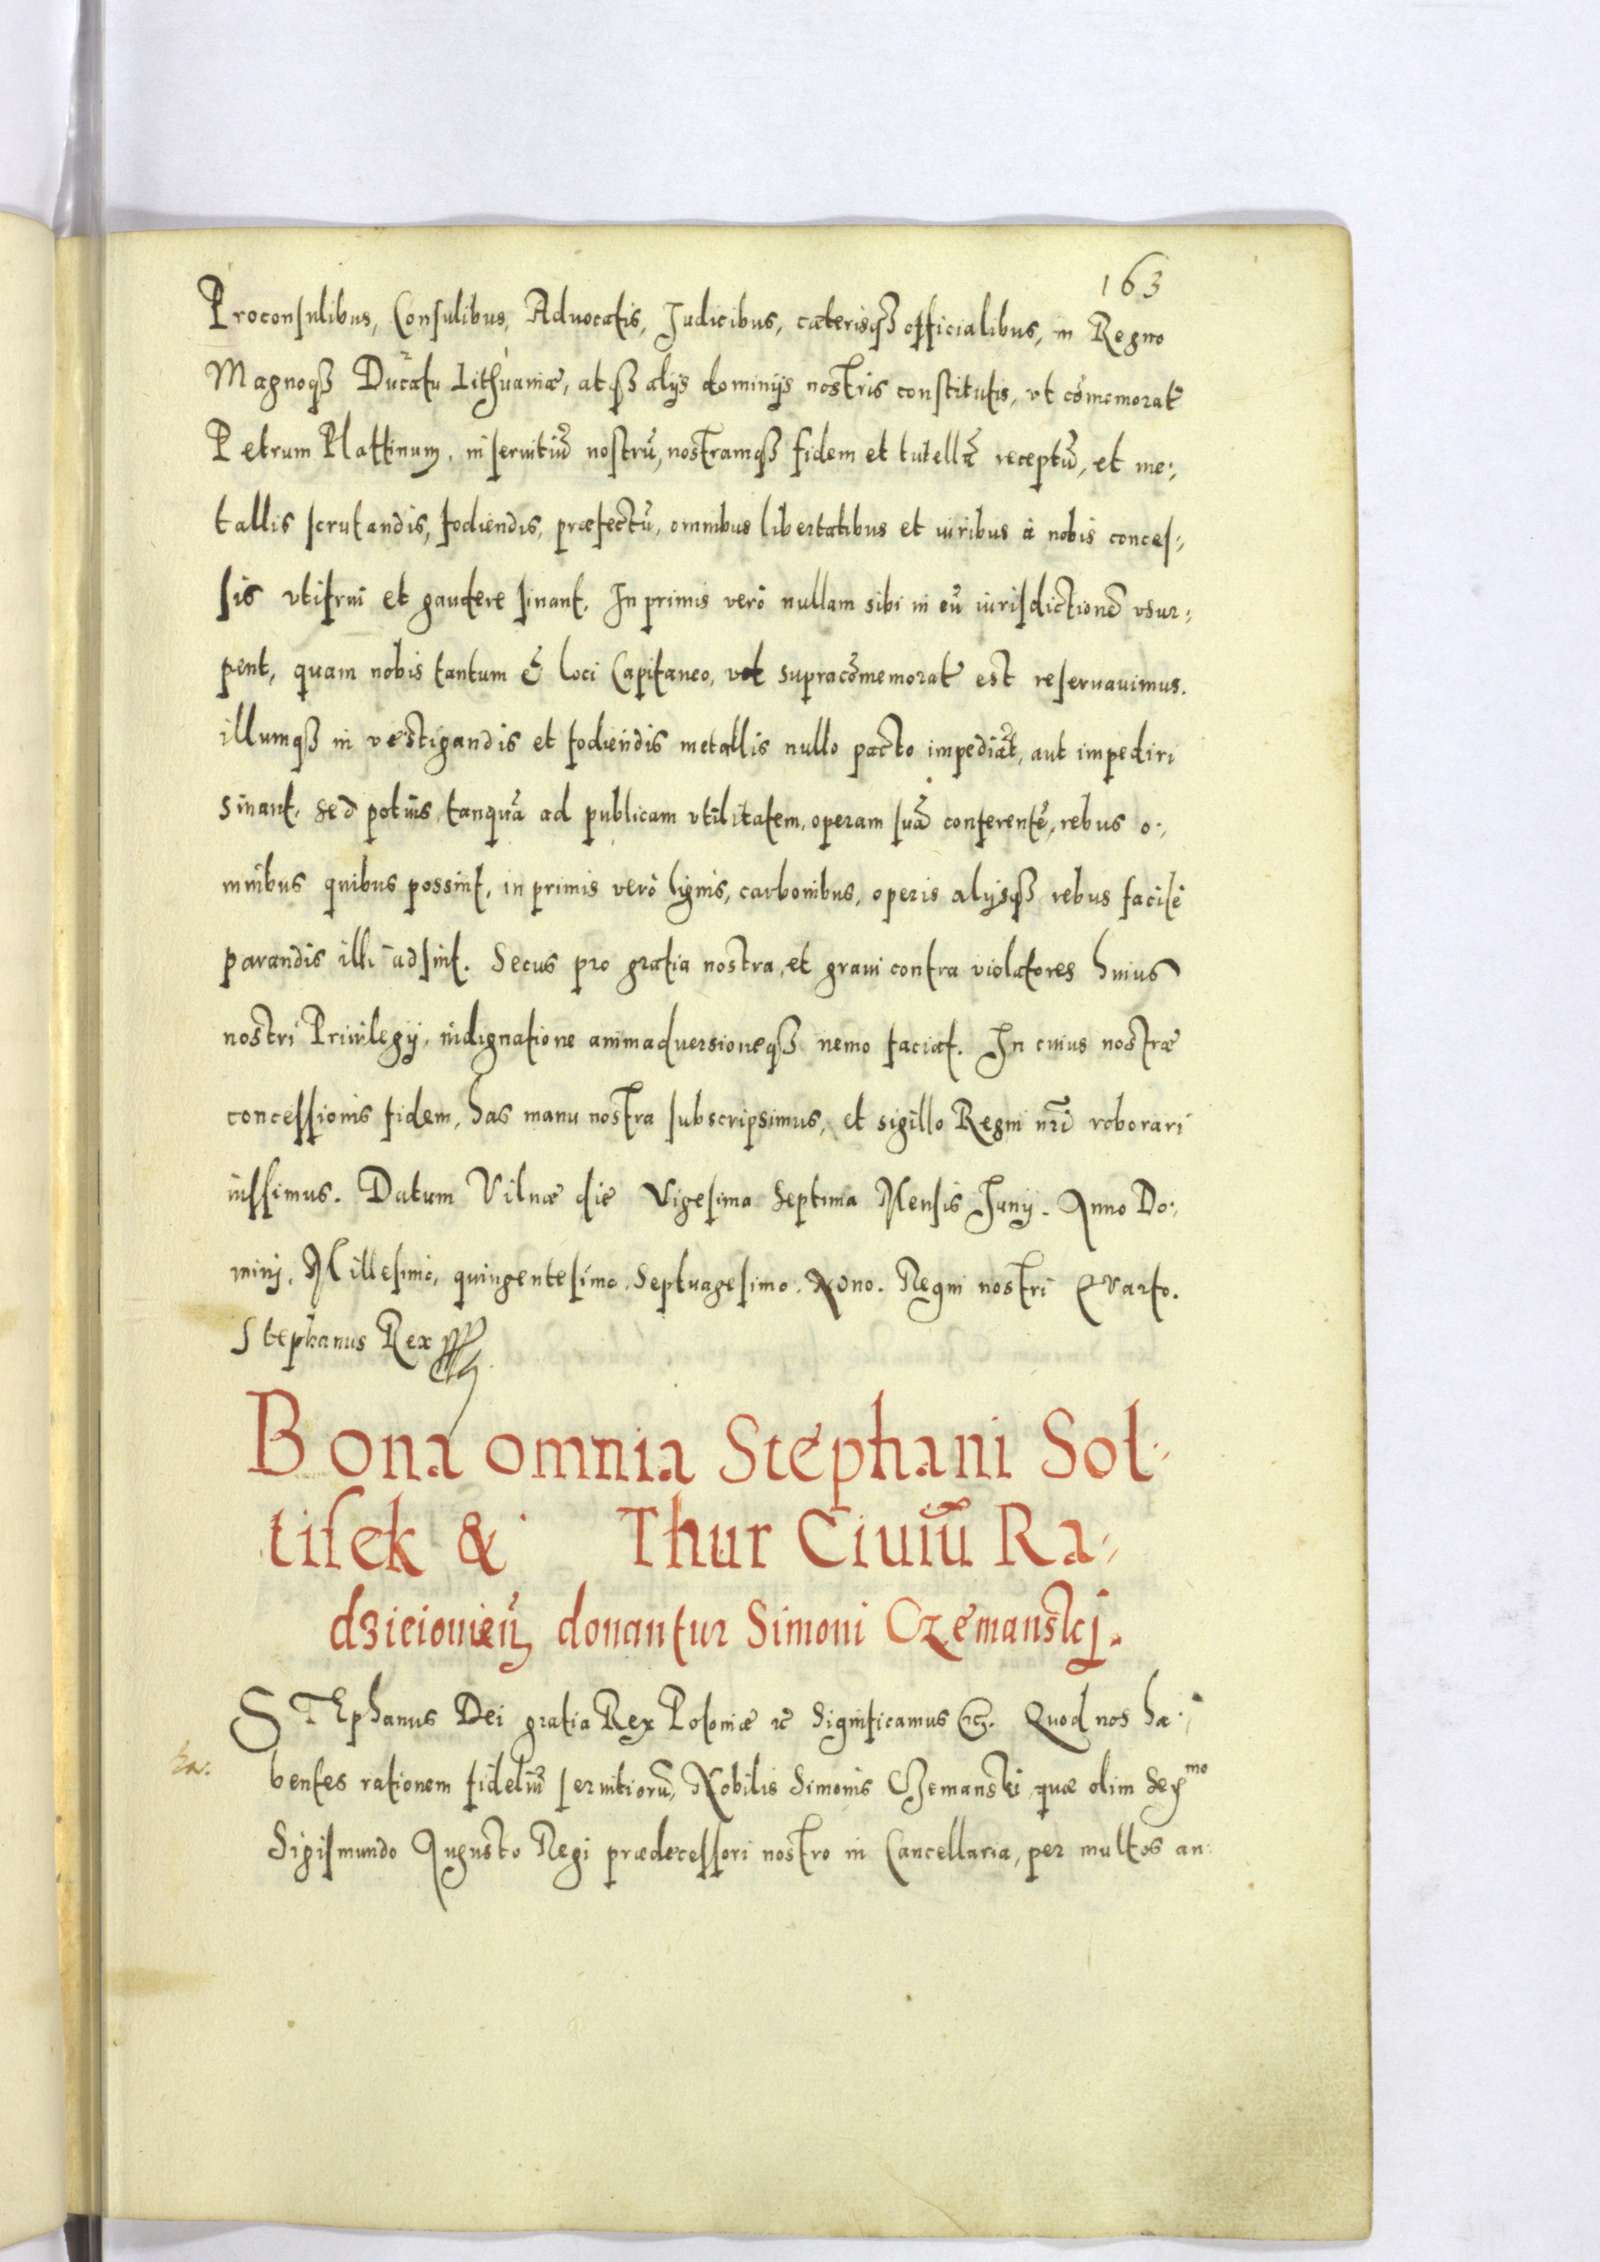 163
Proconsulibus, Consulibus, Aduocatis, Judicibus, cæterisqȝ officialibus, in Regno
Magnoqȝ Ducatu Lithuaniæ, atqȝ alijs dominijs nostris constitutis, vt cõmemorat͂
Petrum Plattinum, in seruitiũ nostrũ, nostramqȝ fidem et tutellã receptũ, et me:,
tallis scrutandis, fodiendis, præfectũ, omnibus libertatibus et iuribus à nobis conces:,
sis vtifrui et gaudere sinant. In primis verò nullam sibi in eũ iurisdictionẽ vsur:,
pent, quam nobis tantum & loci Capitaneo, vt supracõmemorat͂ est reseruauimus.
illumqȝ in vestigandis et fodiendis metallis nullo pacto impediãt, aut impediri
sinant. Sed potius, tanquã ad publicam vtilitatem, operam suã conferentẽ, rebus o:,
mnibus quibus possint, in primis verò lignis, carbonibus, operis alijsqȝ rebus facilè
parandis illi adsint. Secus pro gratia nostra, et graui contra violatores huius
nostri Priuilegij, indignatione animaduersioneqȝ nemo faciat. In cuius nostræ
concessionis fidem, has manu nostra subscripsimus, et sigillo Regni nr̃i roborari
iussimus. Datum Vilnæ die Vigesima Septima Mensis Junij. Anno Do:,
minj, Millesimo, quingentesimo, Septuagesimo, Nono. Regni nostri Quarto.
Stephanus Rex
Bona omnia Stephani Sol:,
tisek & Thur Ciuiũ Ra:,
dzieiouien̄ donantur Simoni Czemanskj.
STEphanus Dei gratia Rex Poloniæ &c Significamus &c. Quod nos ha:,
bentes rationem fideliũ seruitiorũ, Nobilis Simonis Czemanski, quæ olim Ser^mo
Sigismundo Augusto Regi prædecessori nostro in Cancellaria, per multos an: